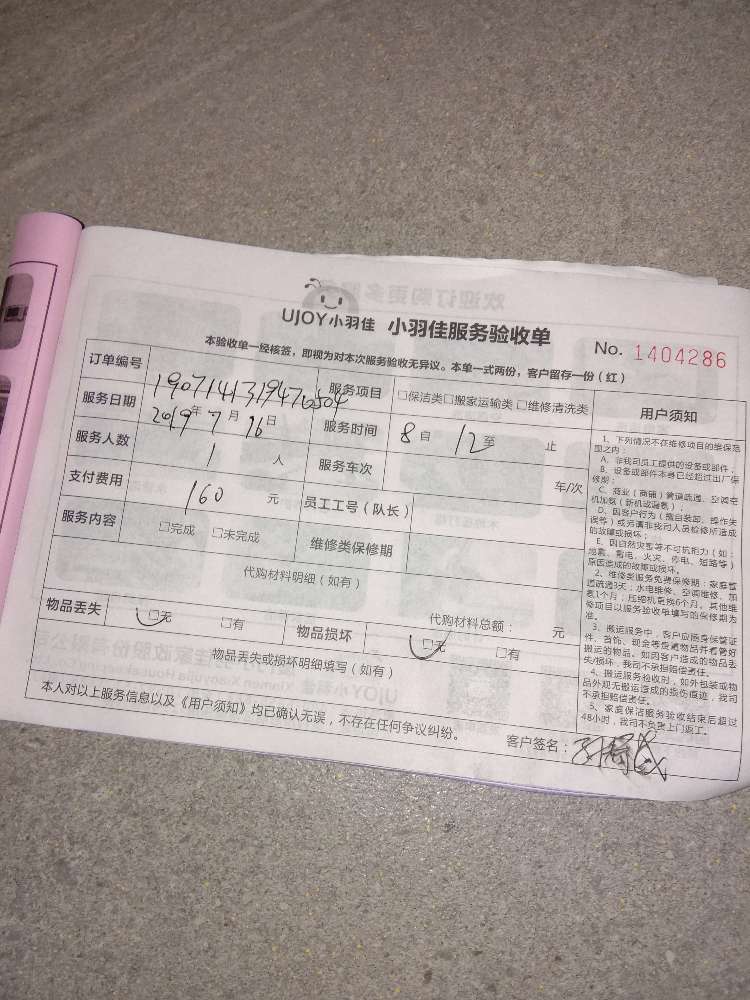 UJOY小羽佳 小羽佳服务验收单 No. 1404286
本验收单一经核签，即视为对本次服务验收无异议。本单一式两份，客户留存一份（红）
订单编号 服务项目 □保洁类□搬家运输类□维修清洗类
服务日期 2019年7月16日 服务时间 8自 12至 止
服务人数 1 人 服务车次 车/次
支付费用 160 元 员工工号（队长）
服务内容 □完成 □未完成 维修类保修期
代购材料明细（如有）
代购材料总额： 元
物品丢失 □无 □有 物品损坏 □无 □有
物品丢失或损坏明细填写（如有）
本人对以上服务信息以及《用户须知》均已确认无误，不存在任何争议纠纷。
客户签名：
用户须知
1、下列情况不在维修项目的维保范
围之内：
A、非我司员工提供的设备或部件；
B、设备或部件本身已经超过出厂保
修期；
C、商业（商铺）管道疏通、空调空
机加氨（新机或漏氨）；
D、因客户行为（擅自装卸、操作失
误等）或另请非我司人员检修所造成
的故障或损坏；
E、因自然灾害等不可抗拒力（如：
地震、雷电、火灾、停电、短路等）
原因造成的故障或损坏。
2、维修类服务免费保修期：家庭管
道疏通3天；水电维修、空调维修、加
氨1个月；压缩机更换6个月。其他维
修项目以服务验收单填写的保修期为
准。
3、搬运服务中，客户应随身保管证
件、首饰、现金等贵重物品并看管好
搬运的物品。如因客户造成的物品丢
失/损坏，我司不承担赔偿责任。
4、搬运服务验收时，如外包装或物
品外观无搬运造成的损伤痕迹，我司
不承担赔偿责任。
5、家庭保洁服务验收结束后超过
48小时，我司不负责上门返工。